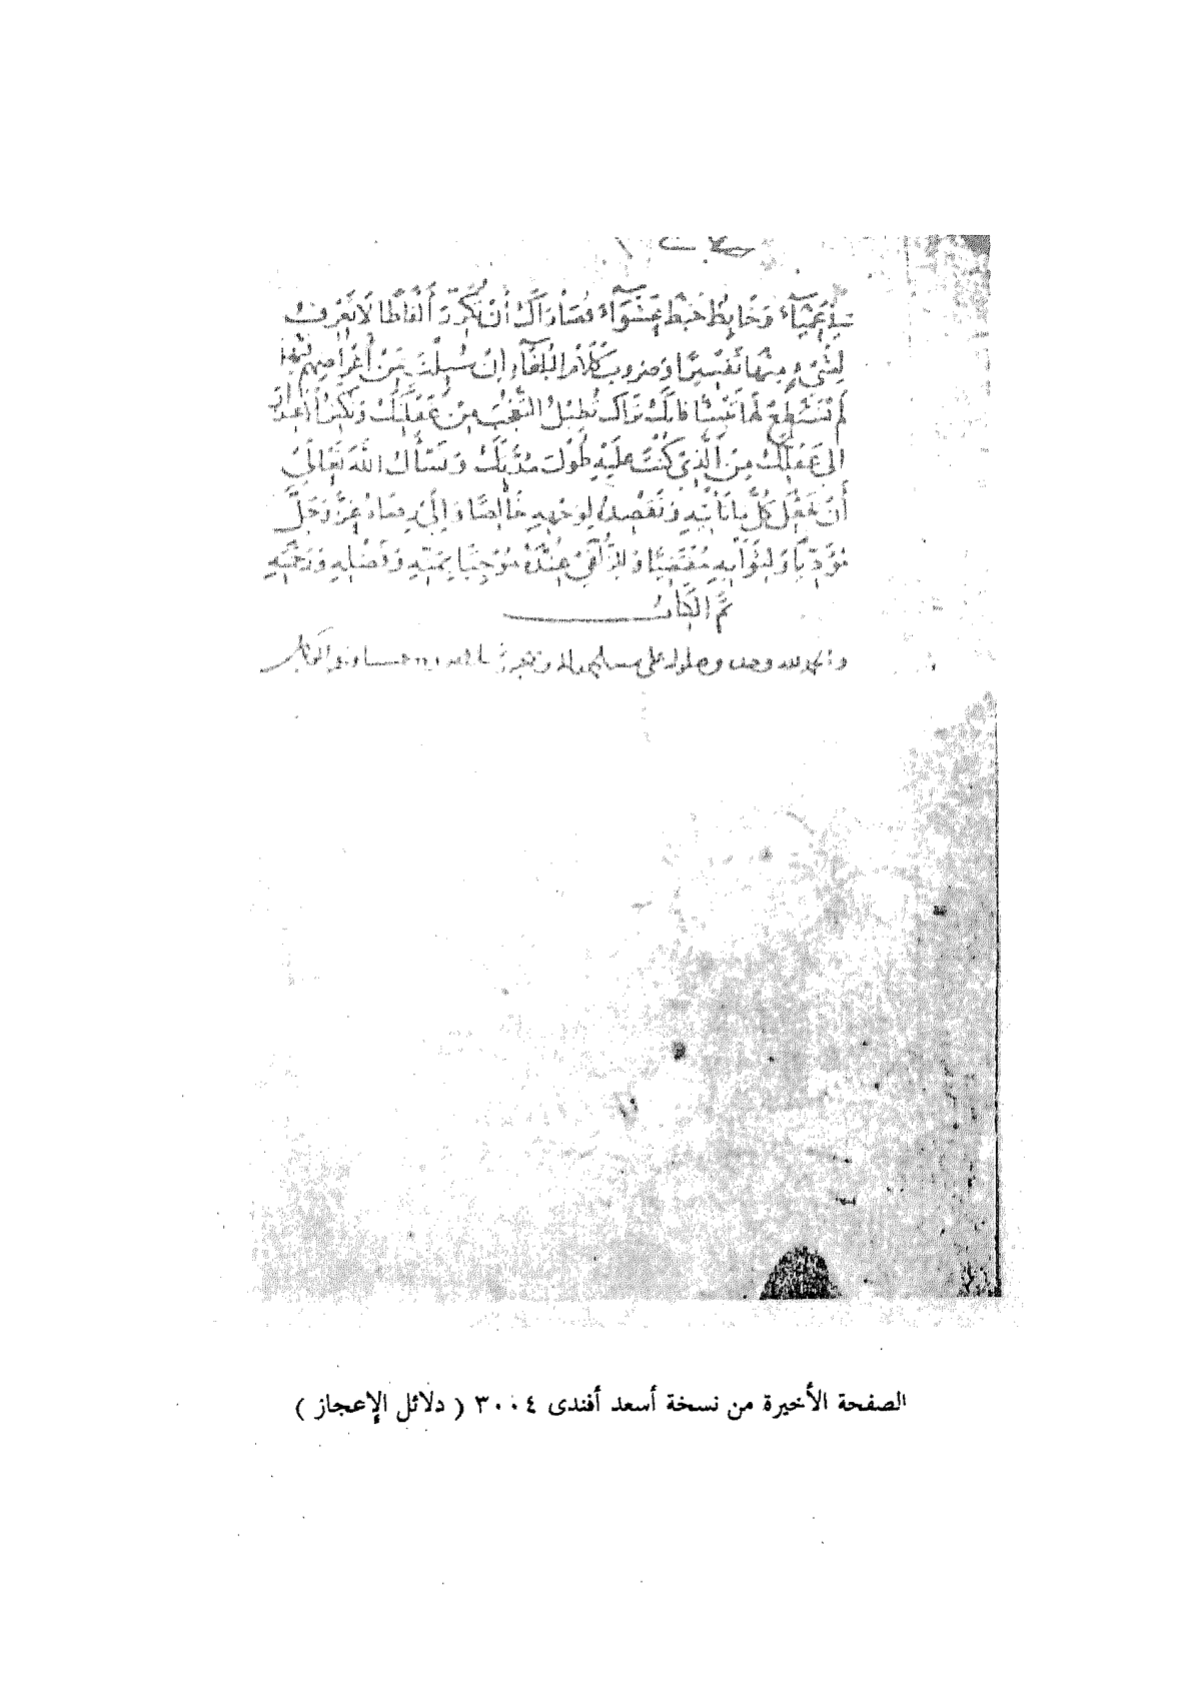 في عمياء وخابط خبط عشواء قصاراك أن تكرر ألفاظا لا تعرف
لشيء منها تفسيرا وضروب كلام البلغاء إن سئلت عن أغراضهم فيها
لم تستطع لها تبيينا فانك تراك تطيل التعجب من غفلتك وتكثر الاعتذار
الى عقلك من الذي كنت عليه طول مدتك ونسأل الله تعالى
أن يجعل كل ما نأتيه ونقصده لوجهه خالصا والى رضاه عز وجل
مؤديا ولثوابه مقتضيا وللزلفى عنده موجبا بمنه وفضله ورحمته
تم الكتاب
والحمد لله وحده
الصفحة الأخيرة من نسخة أسعد أفندى ٣٠٠٤ ( دلائل الإعجاز )